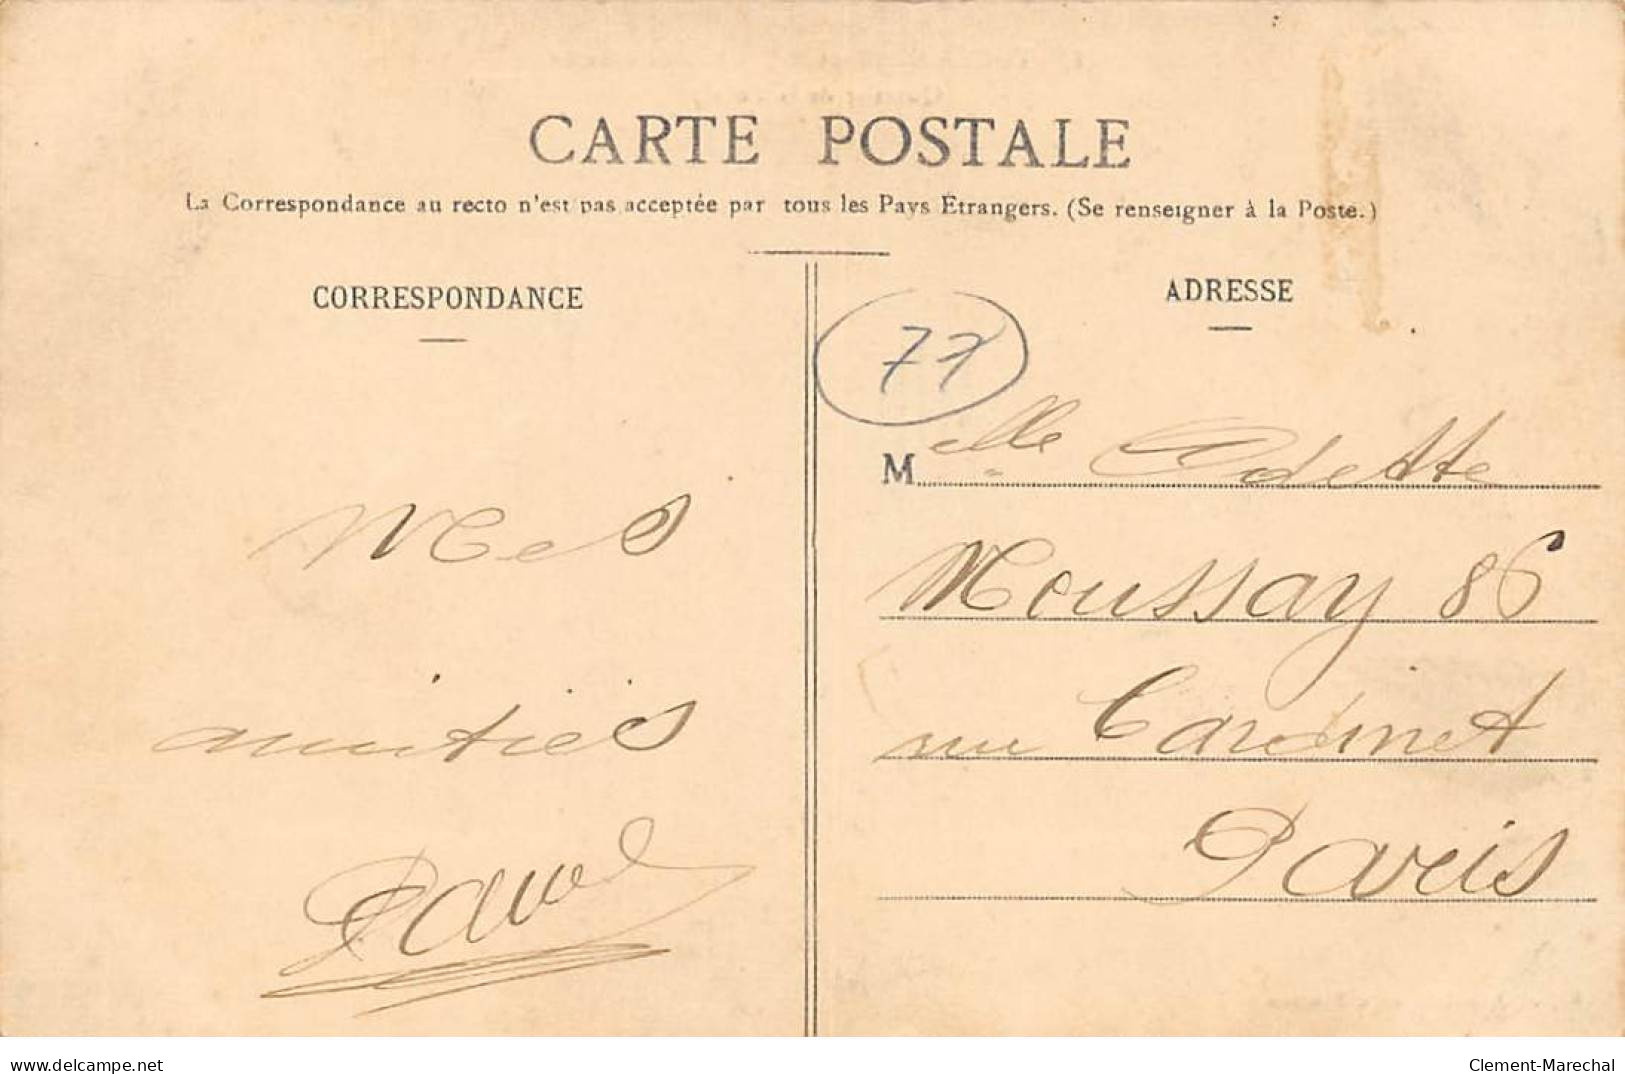 CARTE POSTALE
La Correspondance au recto n'est pas acceptée par tous les Pays Étrangers. (Se renseigner à la Poste.)
CORRESPONDANCE
Mes
amitiés
Paul
ADRESSE
77
Melle Odette
Moussay 86
rue Cardinet
Paris
www.delcampe.net
Clement-Marechal